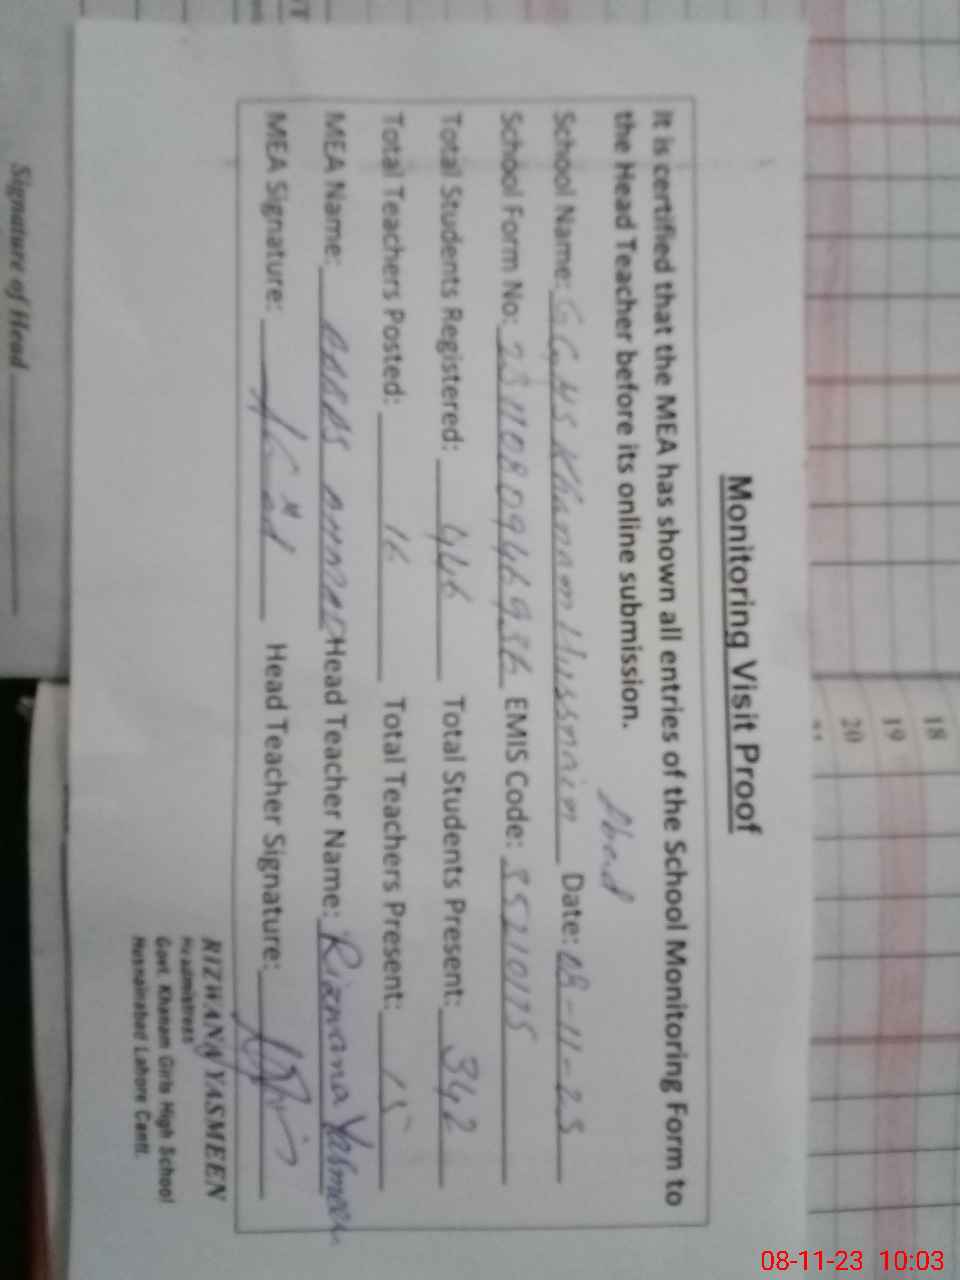 Monitoring Visit Proof
It is certified that the MEA has shown all entries of the School Monitoring Form to
the Head Teacher before its online submission.
School Name: GGHS Khanam Hussnain Abad Date: 08-11-23
School Form No: EMIS Code: 35210175
Total Students Registered: 446 Total Students Present: 342
Total Teachers Posted: 16 Total Teachers Present: 15
MEA Name: ABBAS AHMED Head Teacher Name: Rizwana Yasmeen
MEA Signature: Head Teacher Signature:
RIZWANA YASMEEN
Headmistress
Govt. Khanam Girls High School
Husnainabad Lahore Cantt.
Signature of Head
18
19
20
08-11-23 10:03